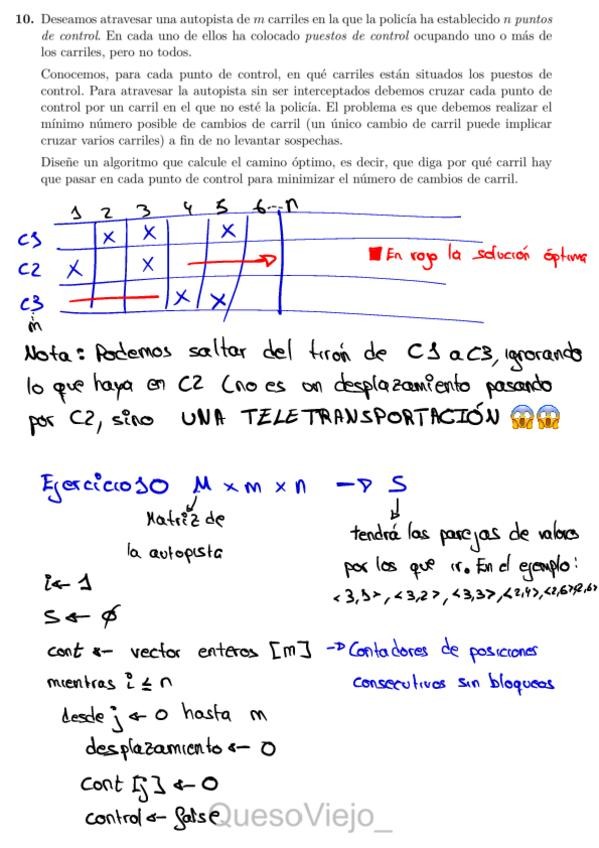 10. Deseamos atravesar una autopista de m carriles en la que la policía ha establecido n puntos
de control. En cada uno de ellos ha colocado puestos de control ocupando uno o más de
los carriles, pero no todos.
Conocemos, para cada punto de control, en qué carriles están situados los puestos de
control. Para atravesar la autopista sin ser interceptados debemos cruzar cada punto de
control por un carril en el que no esté la policía. El problema es que debemos realizar el
mínimo número posible de cambios de carril (un único cambio de carril puede implicar
cruzar varios carriles) a fin de no levantar sospechas.
Diseñe un algoritmo que calcule el camino óptimo, es decir, que diga por qué carril hay
que pasar en cada punto de control para minimizar el número de cambios de carril.
1 2 3 4 5 6...n
C1 x x x
C2 x x
C3 x x
m
En rojo la solución óptima
Nota: Podemos saltar del tirón de C1 a C3, ignorando
lo que haya en C2 (no es un desplazamiento pasando
por C2, sino UNA TELETRANSPORTACIÓN 😱😱
Ejercicio10 M x m x n → S
Matriz de
la autopista
tendrá las parejas de valores
por los que ir. En el ejemplo:
<3,1>, <3,2>, <3,3>, <2,4>,
i ← 1
S ← ∅
cont ← vector enteros [m] → Contadores de posiciones
consecutivos sin bloqueos
mientras i ≤ n
desde j ← 0 hasta m
desplazamiento ← 0
cont [j] ← 0
control ← false
QuesoViejo_